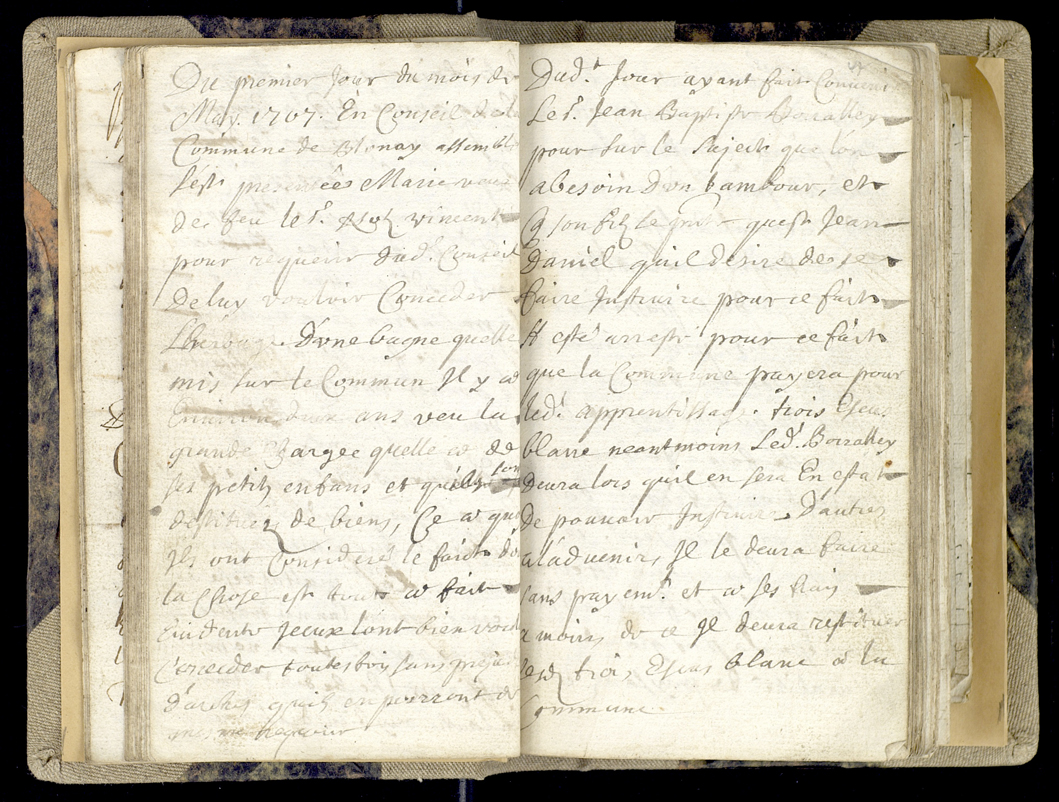 Du premier Jour du mois de
May. 1707. En Conseil de la
Commune de Blonay assemblé
Sest presentées Marie veuve
de feu le Sr. vincent
pour requerir dudt. Conseil
De luy vouloir Conceder
D'une bagne quelle
mis sur le Commun Il y a
ans veu la
grande Bargee quelle a de
ses petits enfans et quils sont
destituez de biens, Ce a que
Ils ont Consideré le faict du
la Chose est toute a fait
Evidente Iceux lont bien voulu
Conceder toutesfois sans prejud
d'autres quils en pourront de
mesme Requerir
Dudt. Jour ayant fait Convenir
Le Sr. Jean Baptiste Boiraltey
pour sur le sujects que lon
a besoin Dun tambour, et
son filz Le quest Jean
Daniel quil Desire de se
faire Instruire pour ce faict
A esté arresté pour ce faict
que la Commune payera pour
ledt. apprentissage. trois Escus
blanc neantmoins Ledt. Boiraltey
Deura lors quil en sera En estat
De pouvoir Instruire D'autres
a laduenir, Il le deura faire
sans payemt. et a ses frais
a moins de ce Il deura restituer
lesdz trois Escus blanc a la
Commune.